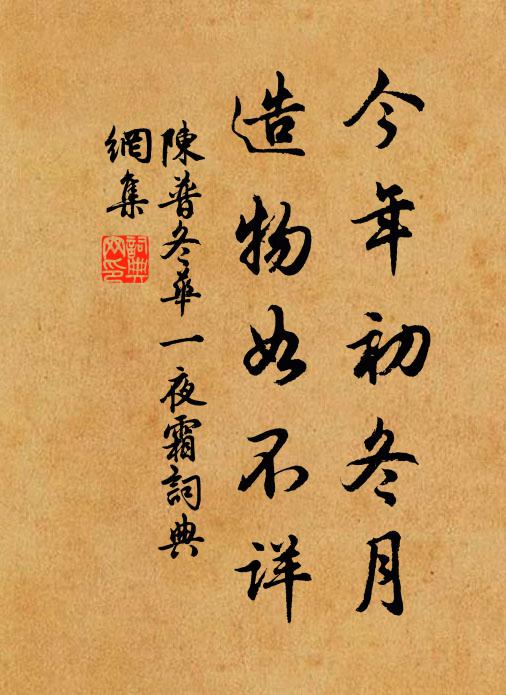 今年初冬月
造物如不详
陳普冬華一夜霜詞典
網集
詞典網印